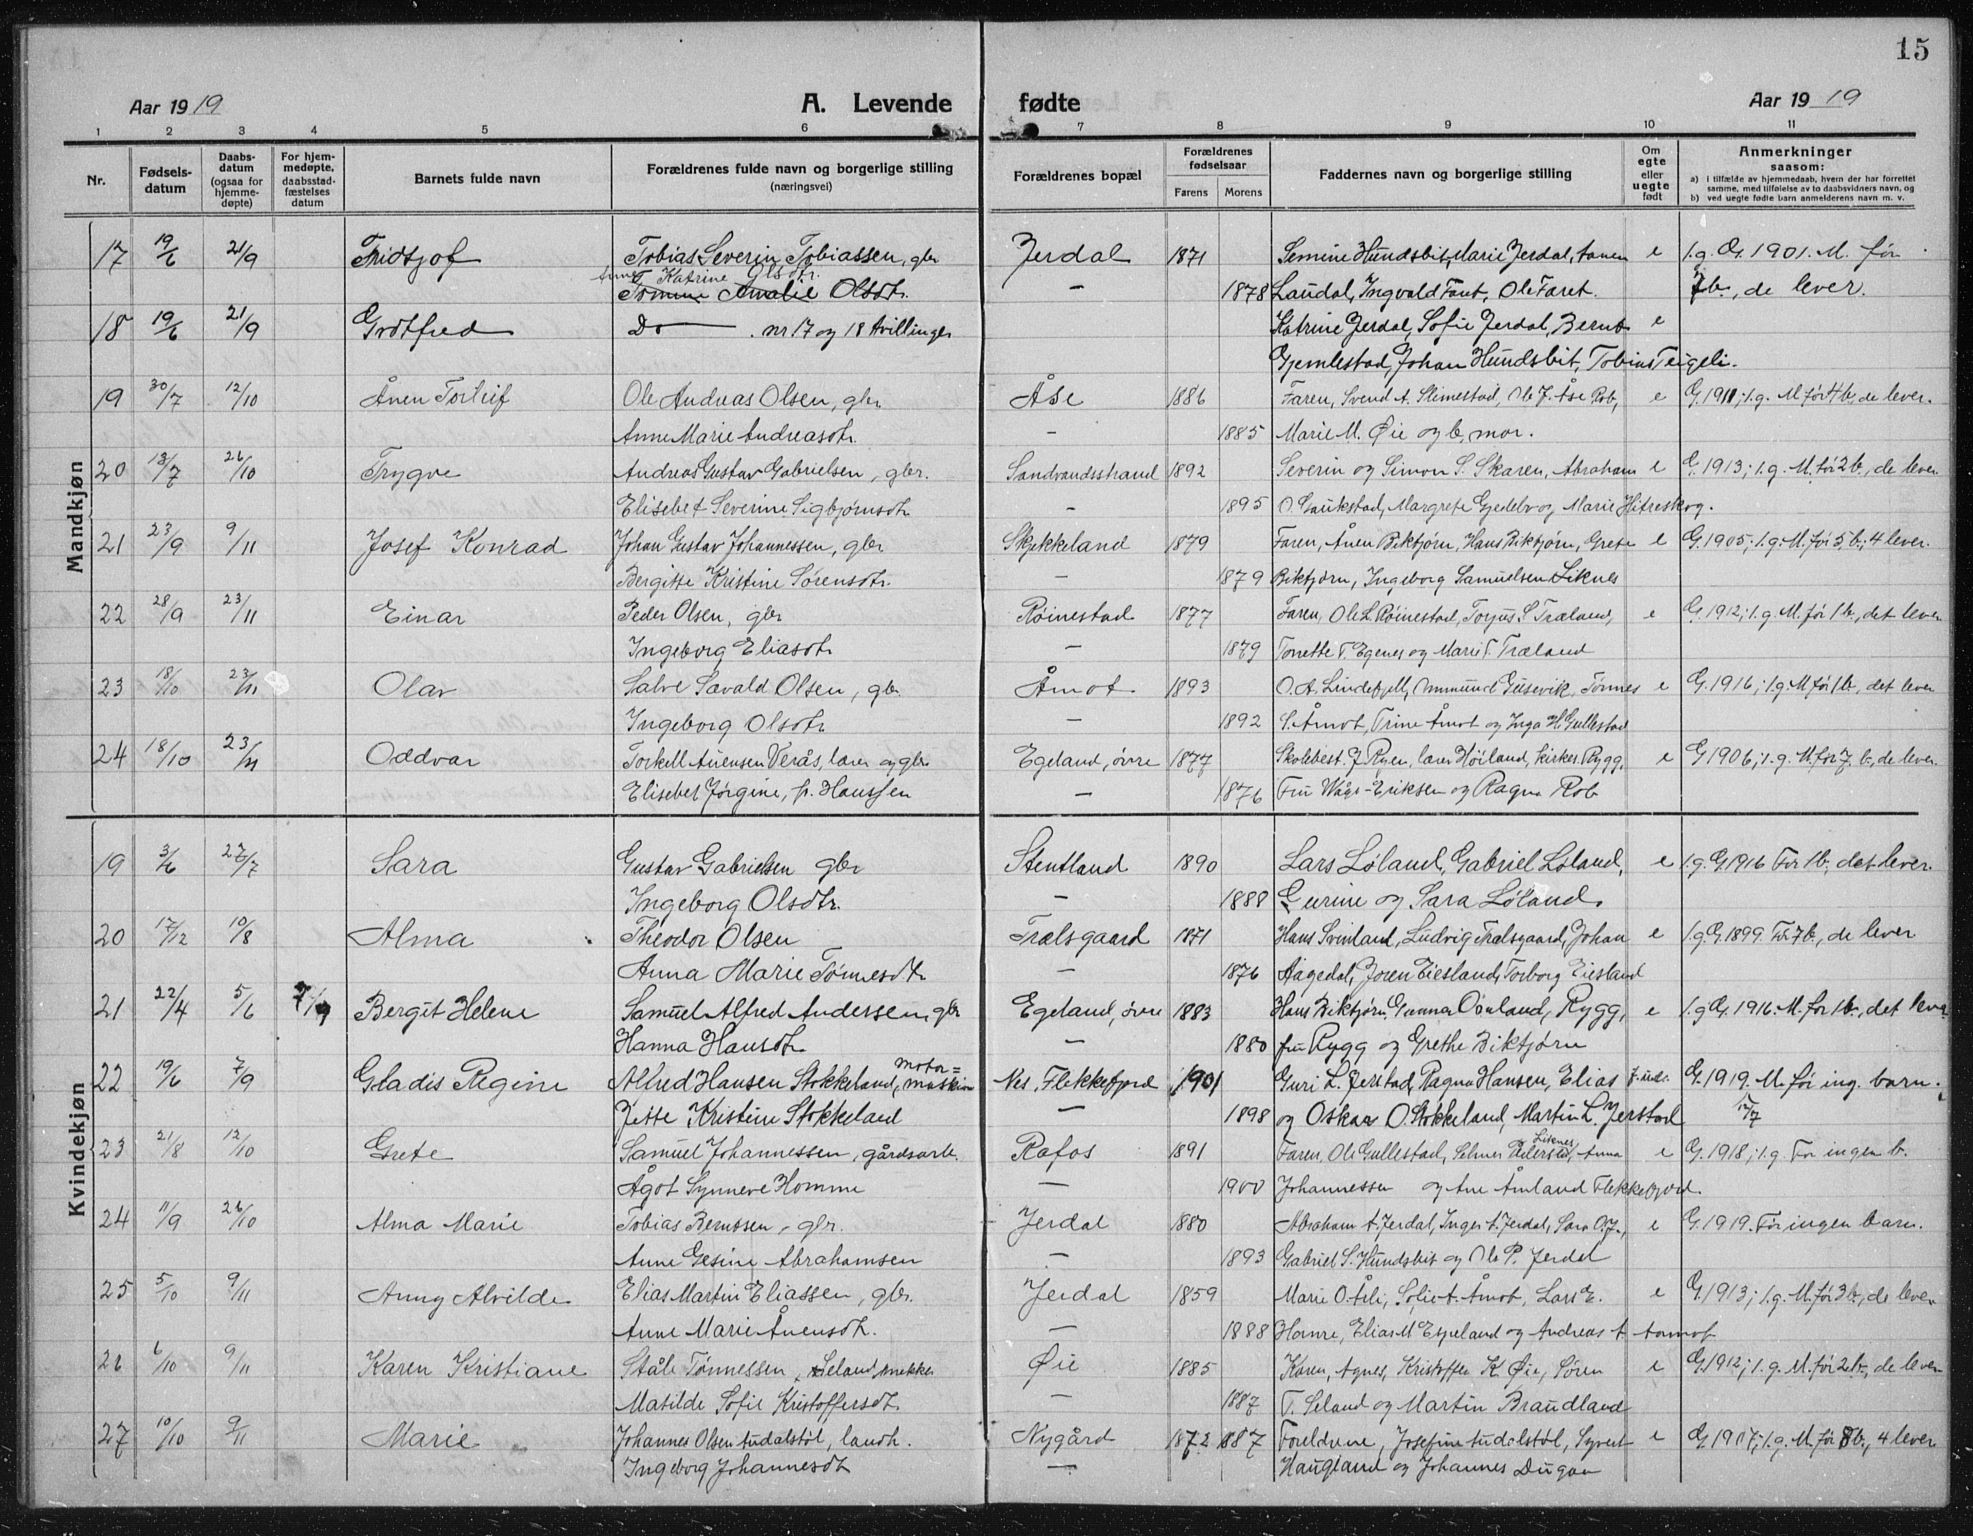 15
Aar 1919 A. Levende fødte Aar 1919
1 2 3 4 5 6 7 8 9 10 11
Nr. Fødsels-datum Daabs-datum (ogsaa for hjemme-døpte) For hjem-medøpte, daabsstad-fæstelses datum Barnets fulde navn Forældrenes fulde navn og borgerlige stilling (næringsvei) Forældrenes bopæl Forældrenes fødselsaar Farens Morens Faddernes navn og borgerlige stilling Om egte eller uegte født Anmerkninger saasom:
a) i tilfælde av hjemmedaab, hvem der har forrettet samme, med tilføielse av to daabsvidners navn, og
b) ved uegte fødte barn anmelderens navn m. v.
Mandkjøn
17 19/6 21/9 Fridtjof Tobias Severin Tobiassen, gbr Jerdal 1871 Semine Hundsbit, Marie Jerdal, e 1.g. G. 1901. M. før
Anne Katrine Olsdtr.
Tomine Amalie Olsdt. — 1878 Laudal, Ingvald Faret, Ole Faret. 7 b., de lever.
18 19/6 21/9 Gotfred Do — . nr 17 og 18 tvillinger Katrine Jerdal, Sofie Jerdal, Bernt e
Gjemlestad, Johan Hundsbit, Tobias Teigeli.
19 30/7 12/10 Ånen Torleif Ole Andreas Olsen, gbr Åse 1886 Faren, Svend A. Slimestad, Ole J. Åse Rob, e G. 1911; 1.g. M. før 4 b., de lever.
Anne Marie Andreasdtr. — 1885 Marie M. Øie og b, mor.
20 13/7 26/10 Trygve Andreas Gustav Gabrielsen, gbr. Sandvandsstrand 1892 Severin og Simon S. Skaren, Abraham e G. 1913; 1.g. M. før 2 b., de lever
Elisebet Severine Sigbjørnsdtr. — 1895 O. Laukstad, Margrete Gjedebo og Marie Hitreskog.
21 23/9 9/11 Josef Konrad Johan Gustav Johannessen, gbr Skjekkeland 1879 Faren, Ånen Biktjørn, Hans Biktjørn, Grete e G. 1905; 1.g. M. før 5 b; 4 lever.
Bergitte Kristine Sørensdtr. — 1879 Biktjørn, Ingeborg Samuelsen Liknes
22 28/9 23/11 Einar Peder Olsen, gbr Røinestad 1877 Faren, Ole L. Røinestad, Torjus S. Træland, e G. 1912; 1.g. M. før 1 b., det lever
Ingeborg Eliasdtr — 1879 Tonette T. Egenes og Marie T. Træland
23 18/10 23/11 Olav Salve Sævald Olsen, gbr. Åmot 1893 O. A. Lindefjell, Ommund Gusevik, Tønnes e G. 1916; 1.g. M. før 1 b., det lever
Ingeborg Olsdtr — 1892 S. Åmot, Trine Åmot og Inga H. Gullestad
24 18/10 23/11 Oddvar Torkell Auensen Verås, lærer og gbr Egeland, øvre 1877 Skolebest. J. Ryen, lærer Høiland, kirkes. Rygg, e G. 1906; 1.g. M. før 7 b., de lever
Elisebet Jørgine, f. Hanssen — 1876 Fru Wågs-Eriksen og Ragna Rob
Kvindekjøn
19 3/6 27/7 Sara Gustav Gabrielsen gbr Stentland 1890 Lars Løland, Gabriel Løland, e 1.g. G. 1916 Før 1 b; det lever.
Ingeborg Olsdtr. — 1888 Gurine og Sara Løland.
20 17/12 10/8 Alma Theodor Olsen Trælsgaard 1871 Hans Svinland, Ludvig Trælsgaard, Johan e 1.g. G. 1899. Før 7 b., de lever
Anna Marie Tønnesdtr — 1876 Aagedal, Joren Eiesland, Torborg Eiesland
21 22/4 5/6 7/9 Bergit Helene Samuel Alfred Andersen, gbr Egeland, øvre 1883 Hans Biktjørn, Gunnar Omland, Rygg, e 1.g. G. 1916. M. før 1 b., det lever
Hanna Hansdt. — 1880 fru Rygg og Grethe Biktjørn
22 19/6 7/9 Gladis Regine Alfred Hansen Stokkeland, motor= Nes, Flekkefjord 1901 Guri L. Jerstad, Ragna Hansen, Elias G. 1919. M. før ing. barn.
Jette Kristine Stokkeland — 1898 og Oskar O. Stokkeland, Martin L. Jerstad 12/7
23 21/8 12/10 Grete Samuel Johannessen, gårdsarb. Rafos 1891 Faren, Ole Gullestad, Selmer Liknes, Anna e G. 1918; 1.g. Før ingen b.
Ågot Synneve Homme — 1900 Johannessen og Ane Åmland Flekkefjord.
24 11/9 26/10 Alma Marie Tobias Berntsen, gbr. Jerdal 1880 Abraham A. Jerdal, Inger A. Jerdal, Sara O. J., e G. 1919. Før ingen barn.
Anne Gesine Abrahamsen — 1893 Gabriel S. Hundsbit og Ole P. Jerdal
25 5/10 9/11 Anny Alvilde Elias Martin Eliassen, gbr. Jerdal 1859 Marie O. Åsli, Sofie A. Åmot, Lars E. e G. 1913; 1.g. M. før 3 b., de lever
Anne Marie Ånensdt. — 1888 Homre, Elias M. Espeland og Andreas A. Aamot
26 6/10 9/11 Karen Kristiane Ståle Tønnessen Seland, snekker Øie 1885 Karen, Agnes, Kristoffer K. Øie, Søren e G. 1912; 1.g. M. før 2 b., de lever
Matilde Sofie Kristoffersdt. — 1887 T. Seland og Martin Braudland
27 10/10 9/11 Marie Johannes Olsen Audalstøl, landh. Nygård 1872 1887 Foreldrene, Josefine Audalstøl, Syvert e G. 1907; 1.g. M. før 8 b., 4 lever
Ingeborg Johannesdt — Haugland og Johannes Dugan